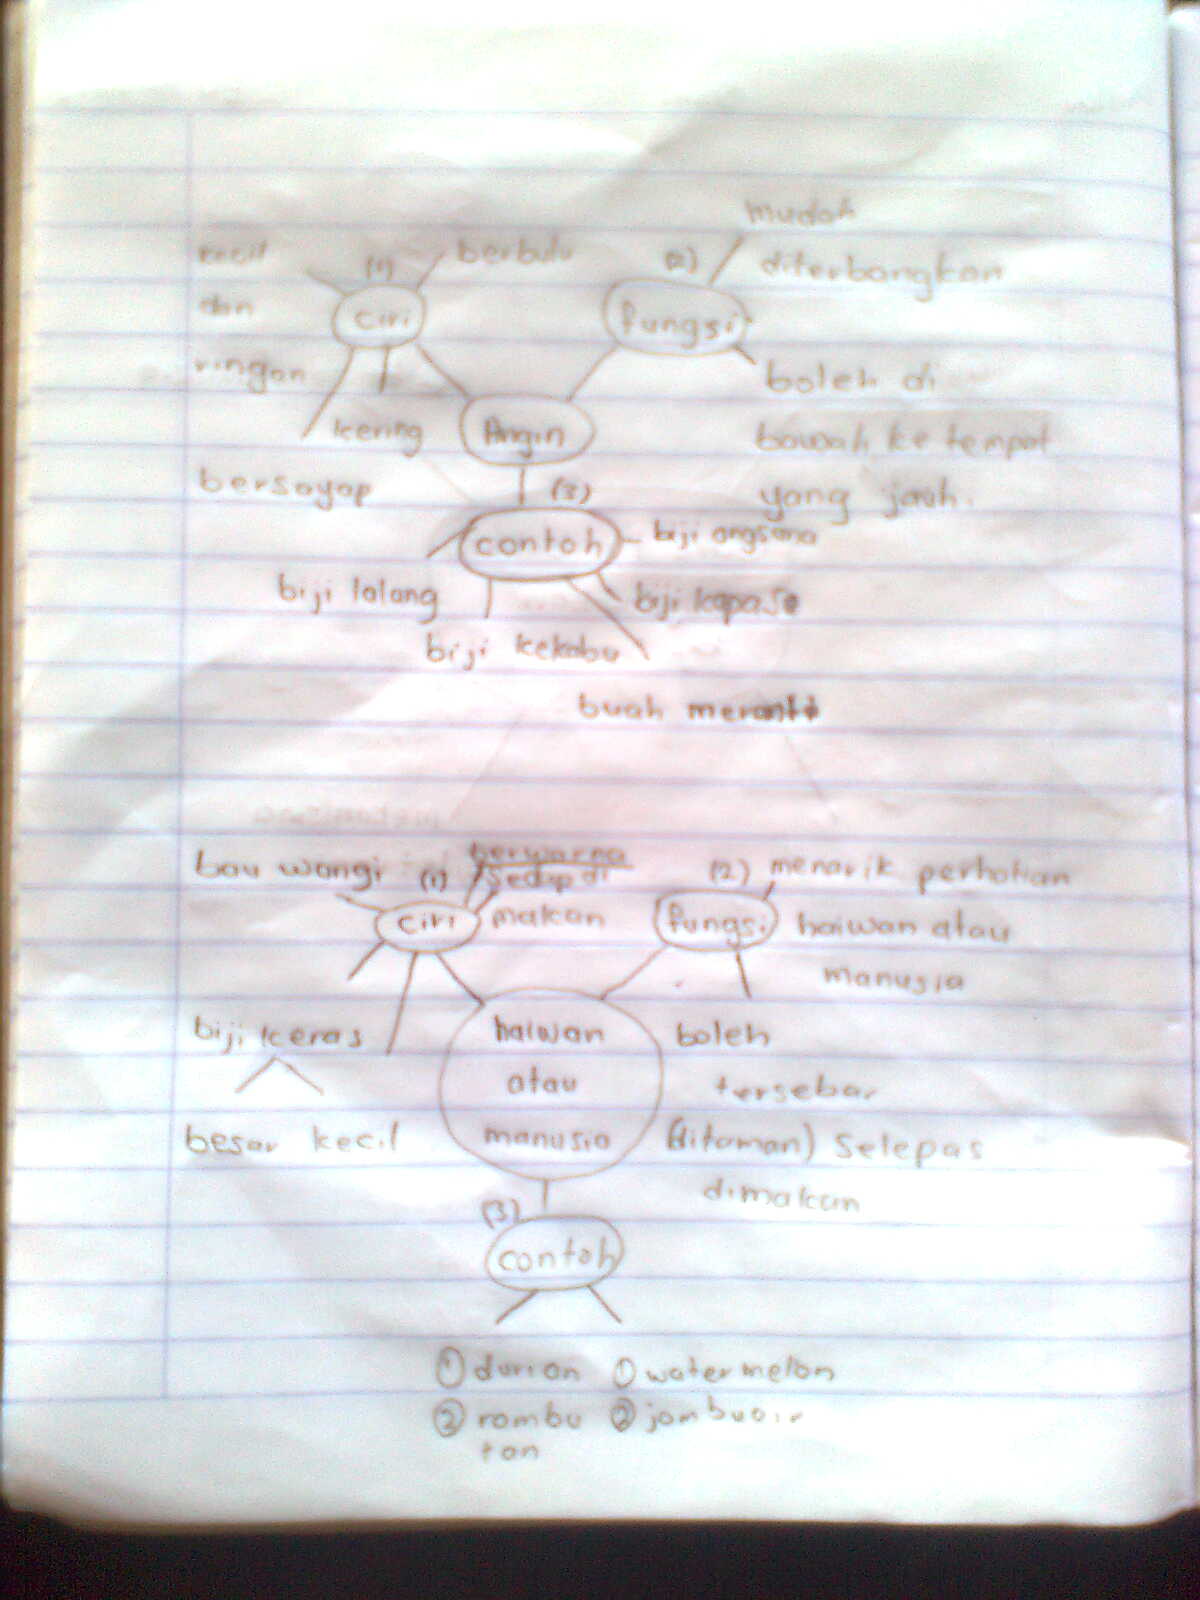 mudah
kecil (1) berbulu (2) diterbangkan
dan ciri fungsi
ringan boleh di
kering Angin bawah ke tempat
bersayap (3) yang jauh.
contoh biji angsana
biji lalang biji kapas
biji kekabu
buah meranti
berwarna
bau wangi (1) sedap di (2) menarik perhatian
ciri makan fungsi haiwan atau
manusia
biji keras haiwan boleh
atau tersebar
besar kecil manusia (ditaman) selepas
dimakan
(3)
contoh
1 durian 1 watermelon
2 rambu 2 jambu air
tan